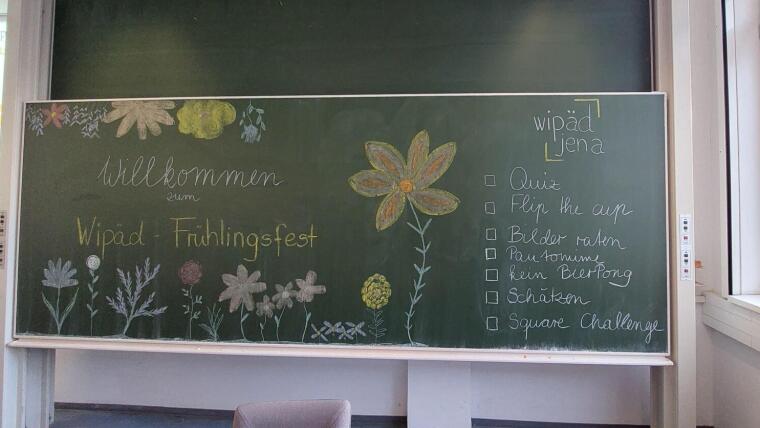 Willkommen
zum
Wipäd - Frühlingsfest
wipäd
jena
Quiz
Flip the cup
Bilder raten
Pantomime
kein BierPong
Schätzen
Square Challenge